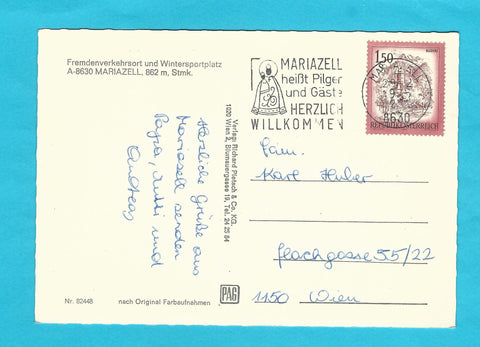 Fremdenverkehrsort und Wintersportplatz
A-8630 MARIAZELL, 862 m, Stmk.
MARIAZELL
heißt Pilger
und Gäste
HERZLICH
WILLKOMMEN
1.50
REPUBLIK ÖSTERREICH
8630
Herzliche Grüße aus
Mariazell senden
Papa, Mutti und
Andreas
Verlag: Richard Pietsch & Co. KG.
1020 Wien 2, Blumauergasse 19, Tel. 24 25 64
Fam.
Karl Huber
Flachgasse 55/22
1150 Wien
Nr. 82448
nach Original Farbaufnahmen
PAG